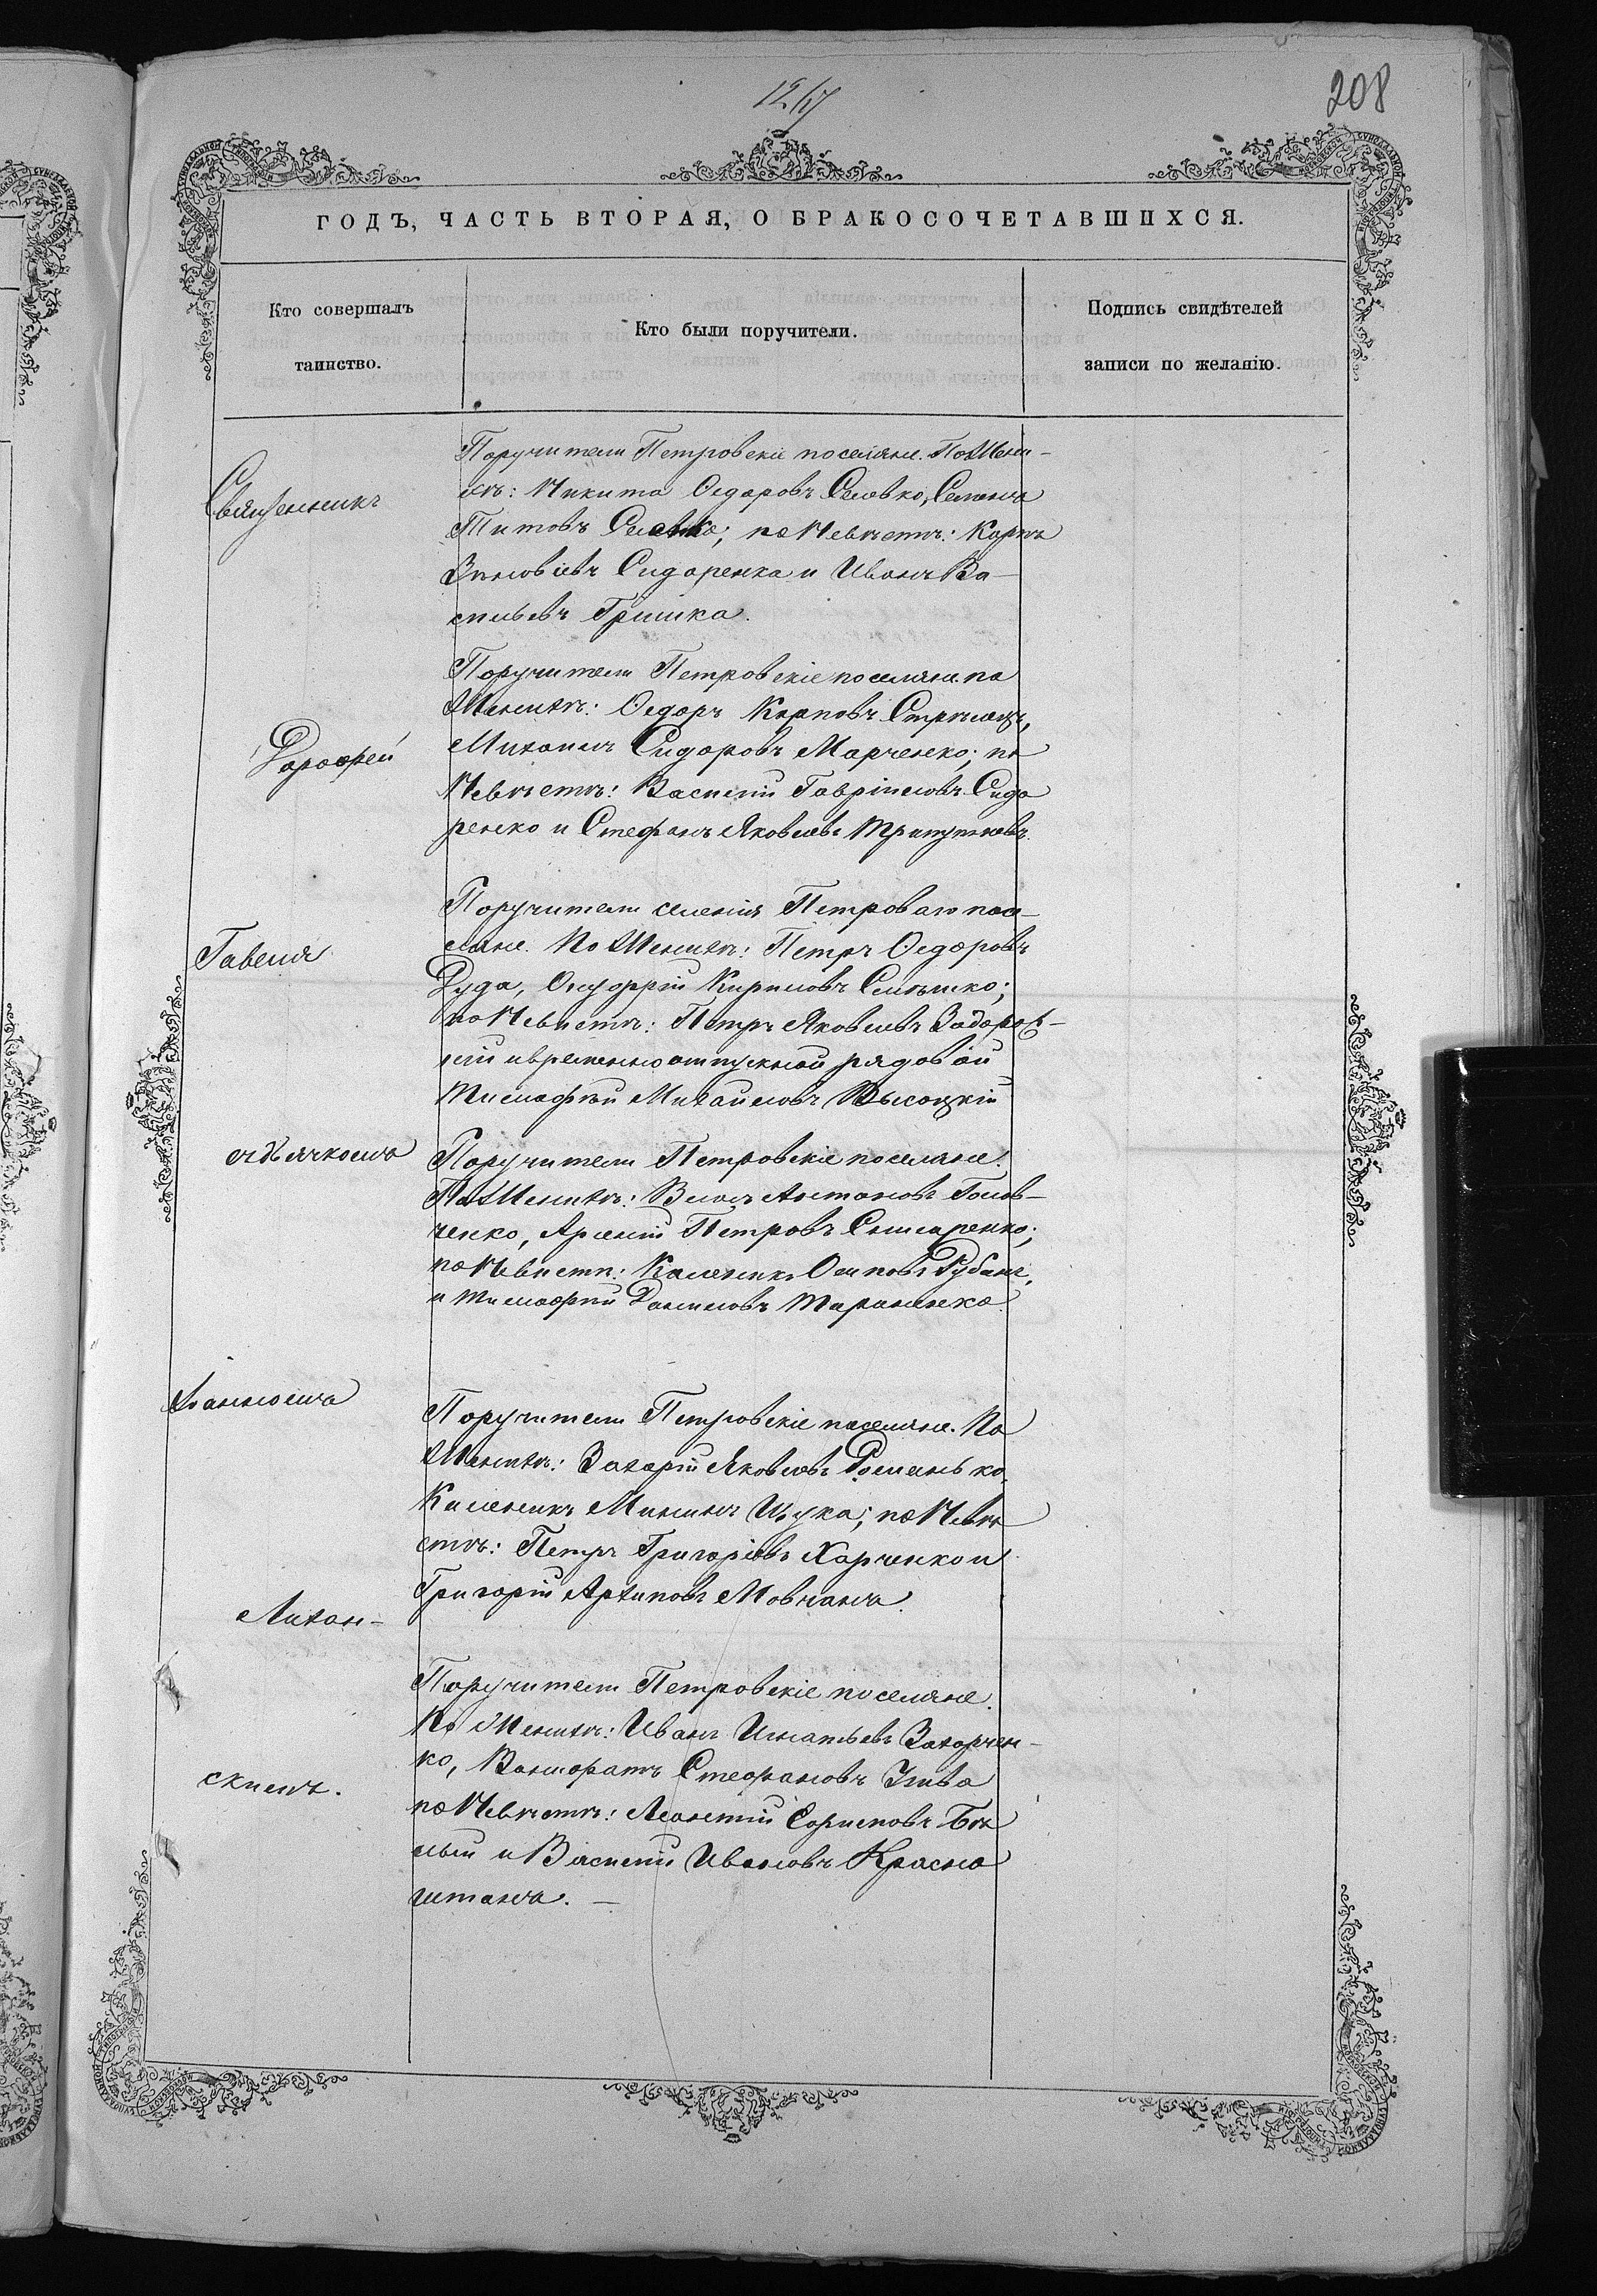 208
ГОДЪ, ЧАСТЬ ВТОРАЯ, О БРАКОСОЧЕТАВШИХСЯ.
Кто совершалъ
таинство.
Кто были поручители.
Подпись свидѣтелей
записи по желанію.
Священникъ
Дорофей
Гавеля
съ дьячкомъ
Іоанномъ
Лихан-
скимъ.
Поручители Петровскіе поселяне. По Жени-
хѣ: Никита Ѳедоровъ Селевко, Семенъ
Титовъ; по Невѣстѣ: Карпъ
Зиновіевъ Сидоренко и Иванъ Ва-
сильевъ Гришка.
Поручители Петровскіе поселяне по
Женихѣ: Ѳедоръ Карповъ Стрѣлецъ,
Михаилъ Сидоровъ Марченко; по
Невѣстѣ: Василій Гавріиловъ Сидо
ренко и Стефанъ Яковлевъ Трипутневъ.
Поручители селенія Петроваго посе-
ляне. По Женихѣ: Петръ Ѳедоровъ
Дуда, Онуфрій Кириловъ;
по Невѣстѣ: Петръ Яковлевъ Задорож-
ній и временно отпускной рядовой
Тимофѣй Михайловъ Высоцкій
Поручители Петровскіе поселяне.
По Женихѣ: Власъ Антоновъ Голов-
ченко, Арсеній Петровъ;
по Невѣстѣ: Каленикъ Осиповъ Рубанъ,
и Тимофѣй Даниловъ Тараненко.
Поручители Петровскіе поселяне. По
Женихѣ: Захарій Яковлевъ Романько,
Каленикъ Мининъ Щука; по Невѣ
стѣ: Петръ Григорьевъ Харченко и
Григорій Архиповъ Мовчанъ.
Поручители Петровскіе поселяне.
По Женихѣ: Иванъ Игнатьевъ Захарчен-
ко, Стефановъ
по Невѣстѣ: Леонтій Бѣ
лый и Василій Ивановъ Красно
штанъ. —